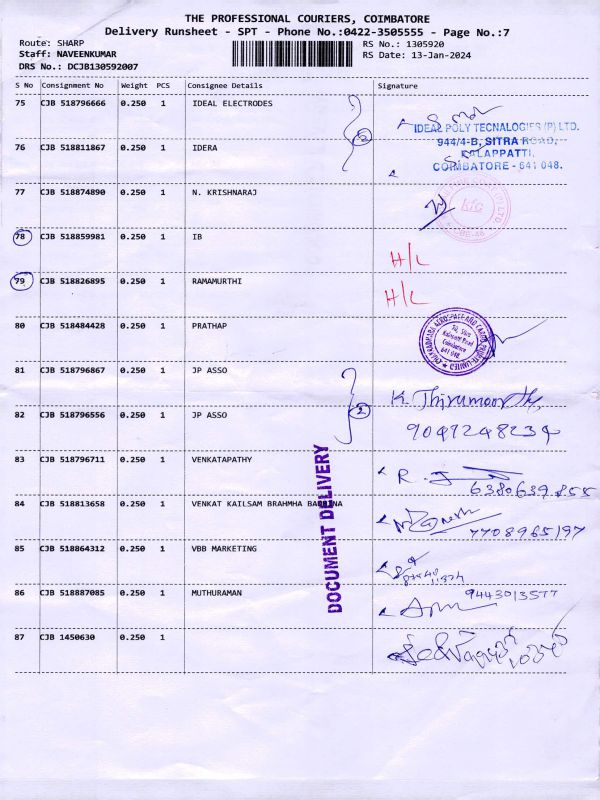 THE PROFESSIONAL COURIERS, COIMBATORE
Delivery Runsheet - SPT - Phone No.:0422-3505555 - Page No.:7
Route: SHARP
RS No.: 1305920
Staff: NAVEENKUMAR
RS Date: 13-Jan-2024
DRS No.: DCJB130592007
S No Consignment No Weight PCS Consignee Details Signature
75 CJB 518796666 0.250 1 IDEAL ELECTRODES
IDEAL POLY TECNALOGIES (P) LTD.
944/4-B, SITRA ROAD,
KALAPPATTI,
COIMBATORE - 641 048.
76 CJB 518811867 0.250 1 IDERA
2
77 CJB 518874890 0.250 1 N. KRISHNARAJ
kfc
78 CJB 518859981 0.250 1 IB
H/L
79 CJB 518826895 0.250 1 RAMAMURTHI
H/L
80 CJB 518484428 0.250 1 PRATHAP
Coimbatore
641 048
81 CJB 518796867 0.250 1 JP ASSO
K. Thirumoorthy,
82 CJB 518796556 0.250 1 JP ASSO
2
83 CJB 518796711 0.250 1 VENKATAPATHY
R.
6380639855
84 CJB 518813658 0.250 1 VENKAT KAILSAM BRAHMHA
7708965197
85 CJB 518864312 0.250 1 VBB MARKETING
86 CJB 518887085 0.250 1 MUTHURAMAN
9443013577
87 CJB 1450630 0.250 1
DOCUMENT DELIVERY